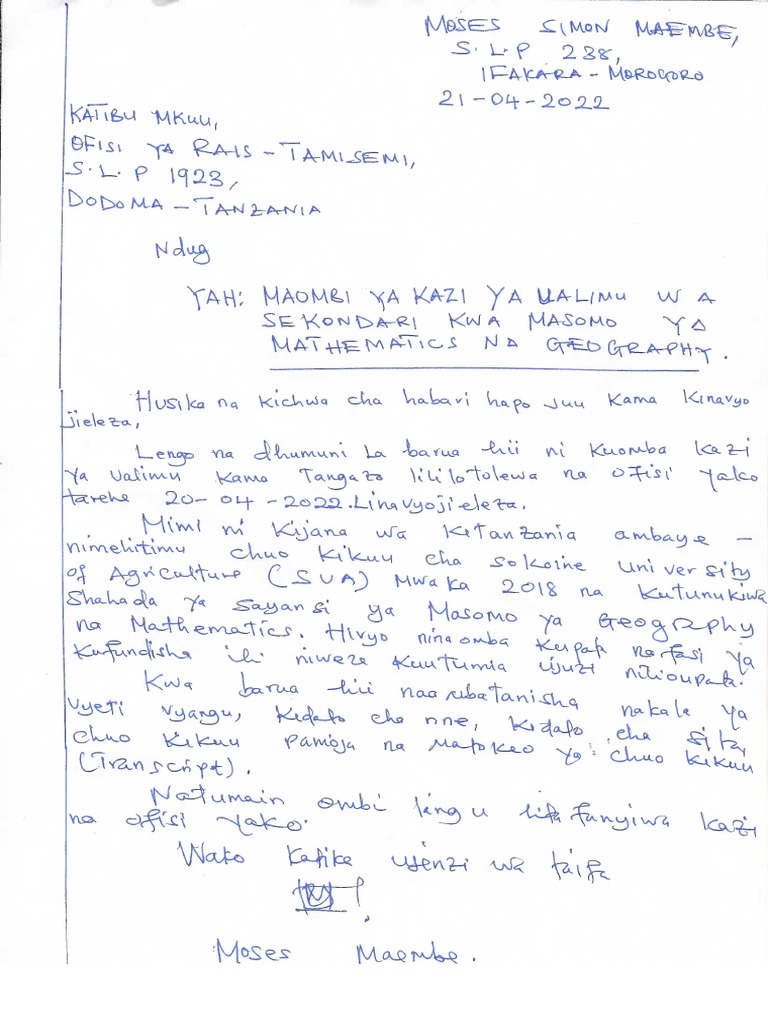 MOSES SIMON MAEMBE,
S.L.P 238,
IFAKARA - MOROGORO
21-04-2022
KATIBU MKUU,
OFISI YA RAIS - TAMISEMI,
S.L.P 1923,
DODOMA - TANZANIA
Ndug
YAH: MAOMBI YA KAZI YA UALIMU WA
SEKONDARI KWA MASOMO YA
MATHEMATICS NA GEOGRAPHY.
Husika na kichwa cha habari hapo juu kama kinavyo
jieleza,
Lengo na dhumuni la barua hii ni kuomba kazi
ya ualimu kama Tangazo lililotolewa na ofisi yako
tarehe 20-04-2022.Linavyojieleza.
Mimi ni kijana wa kitanzania ambaye -
nimehitimu chuo kikuu cha sokoine university
of Agriculture (SUA) Mwaka 2018 na kutunukiwa
Shahada ya sayansi ya Masomo ya Geography
na Mathematics. Hivyo ninaomba kupata nafasi ya
kufundisha ili niweze kuutumia ujuzi nilioupata.
Kwa barua hii naambatanisha nakala ya
vyeti vyangu, kidato cha nne, kidato cha sita,
chuo kikuu pamoja na matokeo ya chuo kikuu
(Transcript).
Natumain ombi langu litafanyiwa kazi
na ofisi yako.
Wako katika ujenzi wa taifa
Moses Maembe.